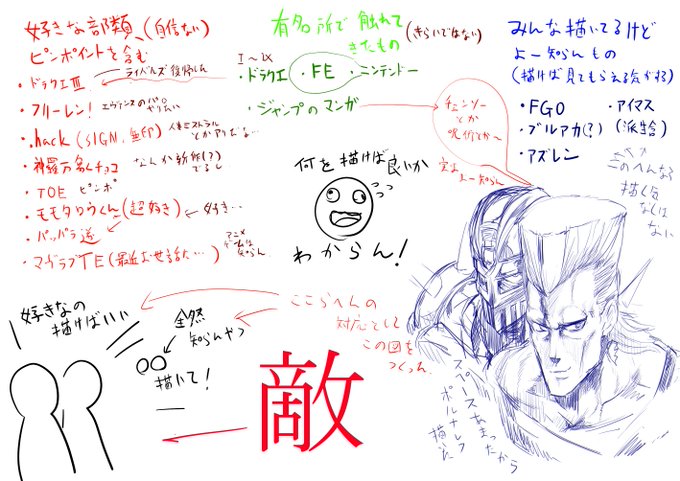 好きな部類、(自信ない)
ピンポイントを含む
・ドラクエⅢ
ライバルズ復帰した
・フリーレン!
・.hack(SIGN、無印)
・神羅万象チョコ
なんか新作(?)
でるし
・TOE ピンポ
・モモタロウくん(超好き)
・パッパラ隊
・マヴラヴTE(最近お世話た…)
アニメ
有名所で触れて
きたもの
(きらいではない)
Ⅰ～Ⅸ
・ドラクエ ・FE ・ニンテンドー
・ジャンプのマンガ
チェンソー
とか
呪術とか～
実は
よー知らん
みんな描いてるけど
よー知らんもの
(描けば見てもらえる気がする)
・FGO
・アイマス
(派生含)
・ブルアカ(?)
・アズレン
このへんなら
描く気
なくは
ない
何を描けば良いか
わからん!
好きなの
描けばいい
全然
知らんやつ
〇〇
描いて!
ここらへんの
対応として
この図を
つくった
敵
スペースあまったから
ポルナレフ
描いた